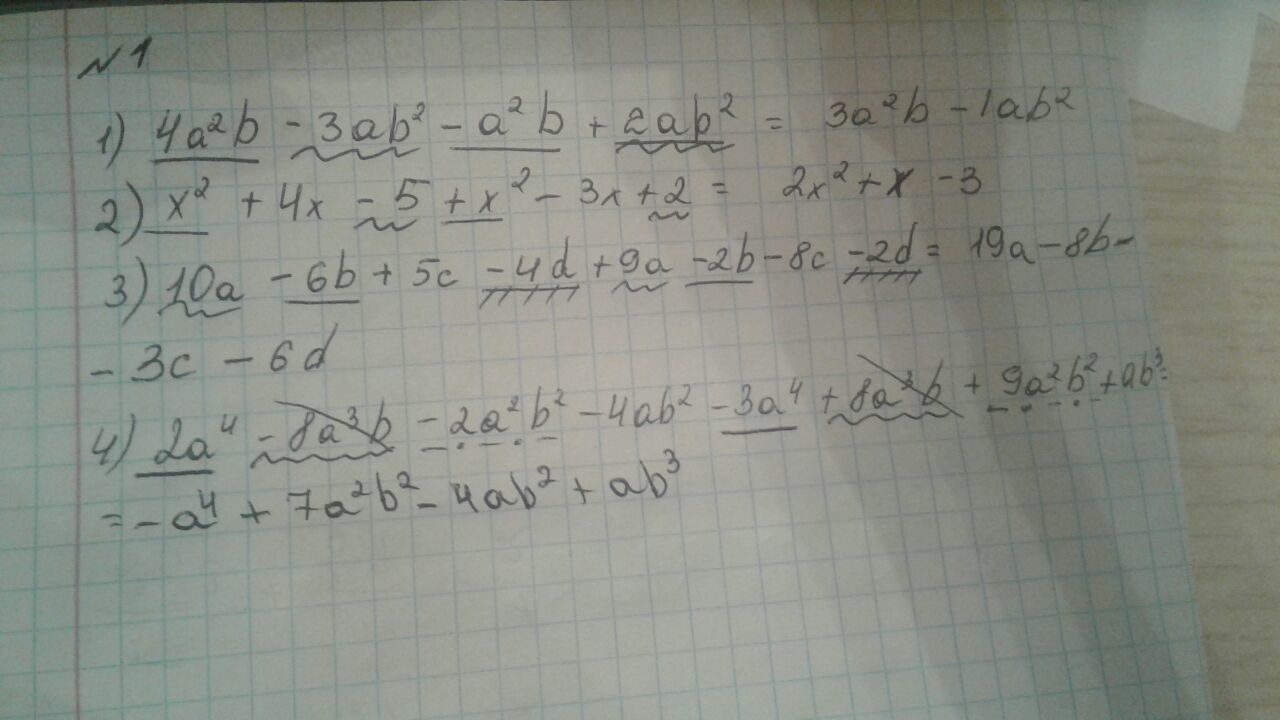 №1
1) 4a²b - 3ab² - a²b + 2ab² = 3a²b - 1ab²
2) x² + 4x - 5 + x² - 3x + 2 = 2x² + x - 3
3) 10a - 6b + 5c - 4d + 9a - 2b - 8c - 2d = 19a - 8b -
- 3c - 6d
4) 2a⁴ - 8a³b - 2a²b² - 4ab² - 3a⁴ + 8a³b + 9a²b² + ab³ =
= -a⁴ + 7a²b² - 4ab² + ab³